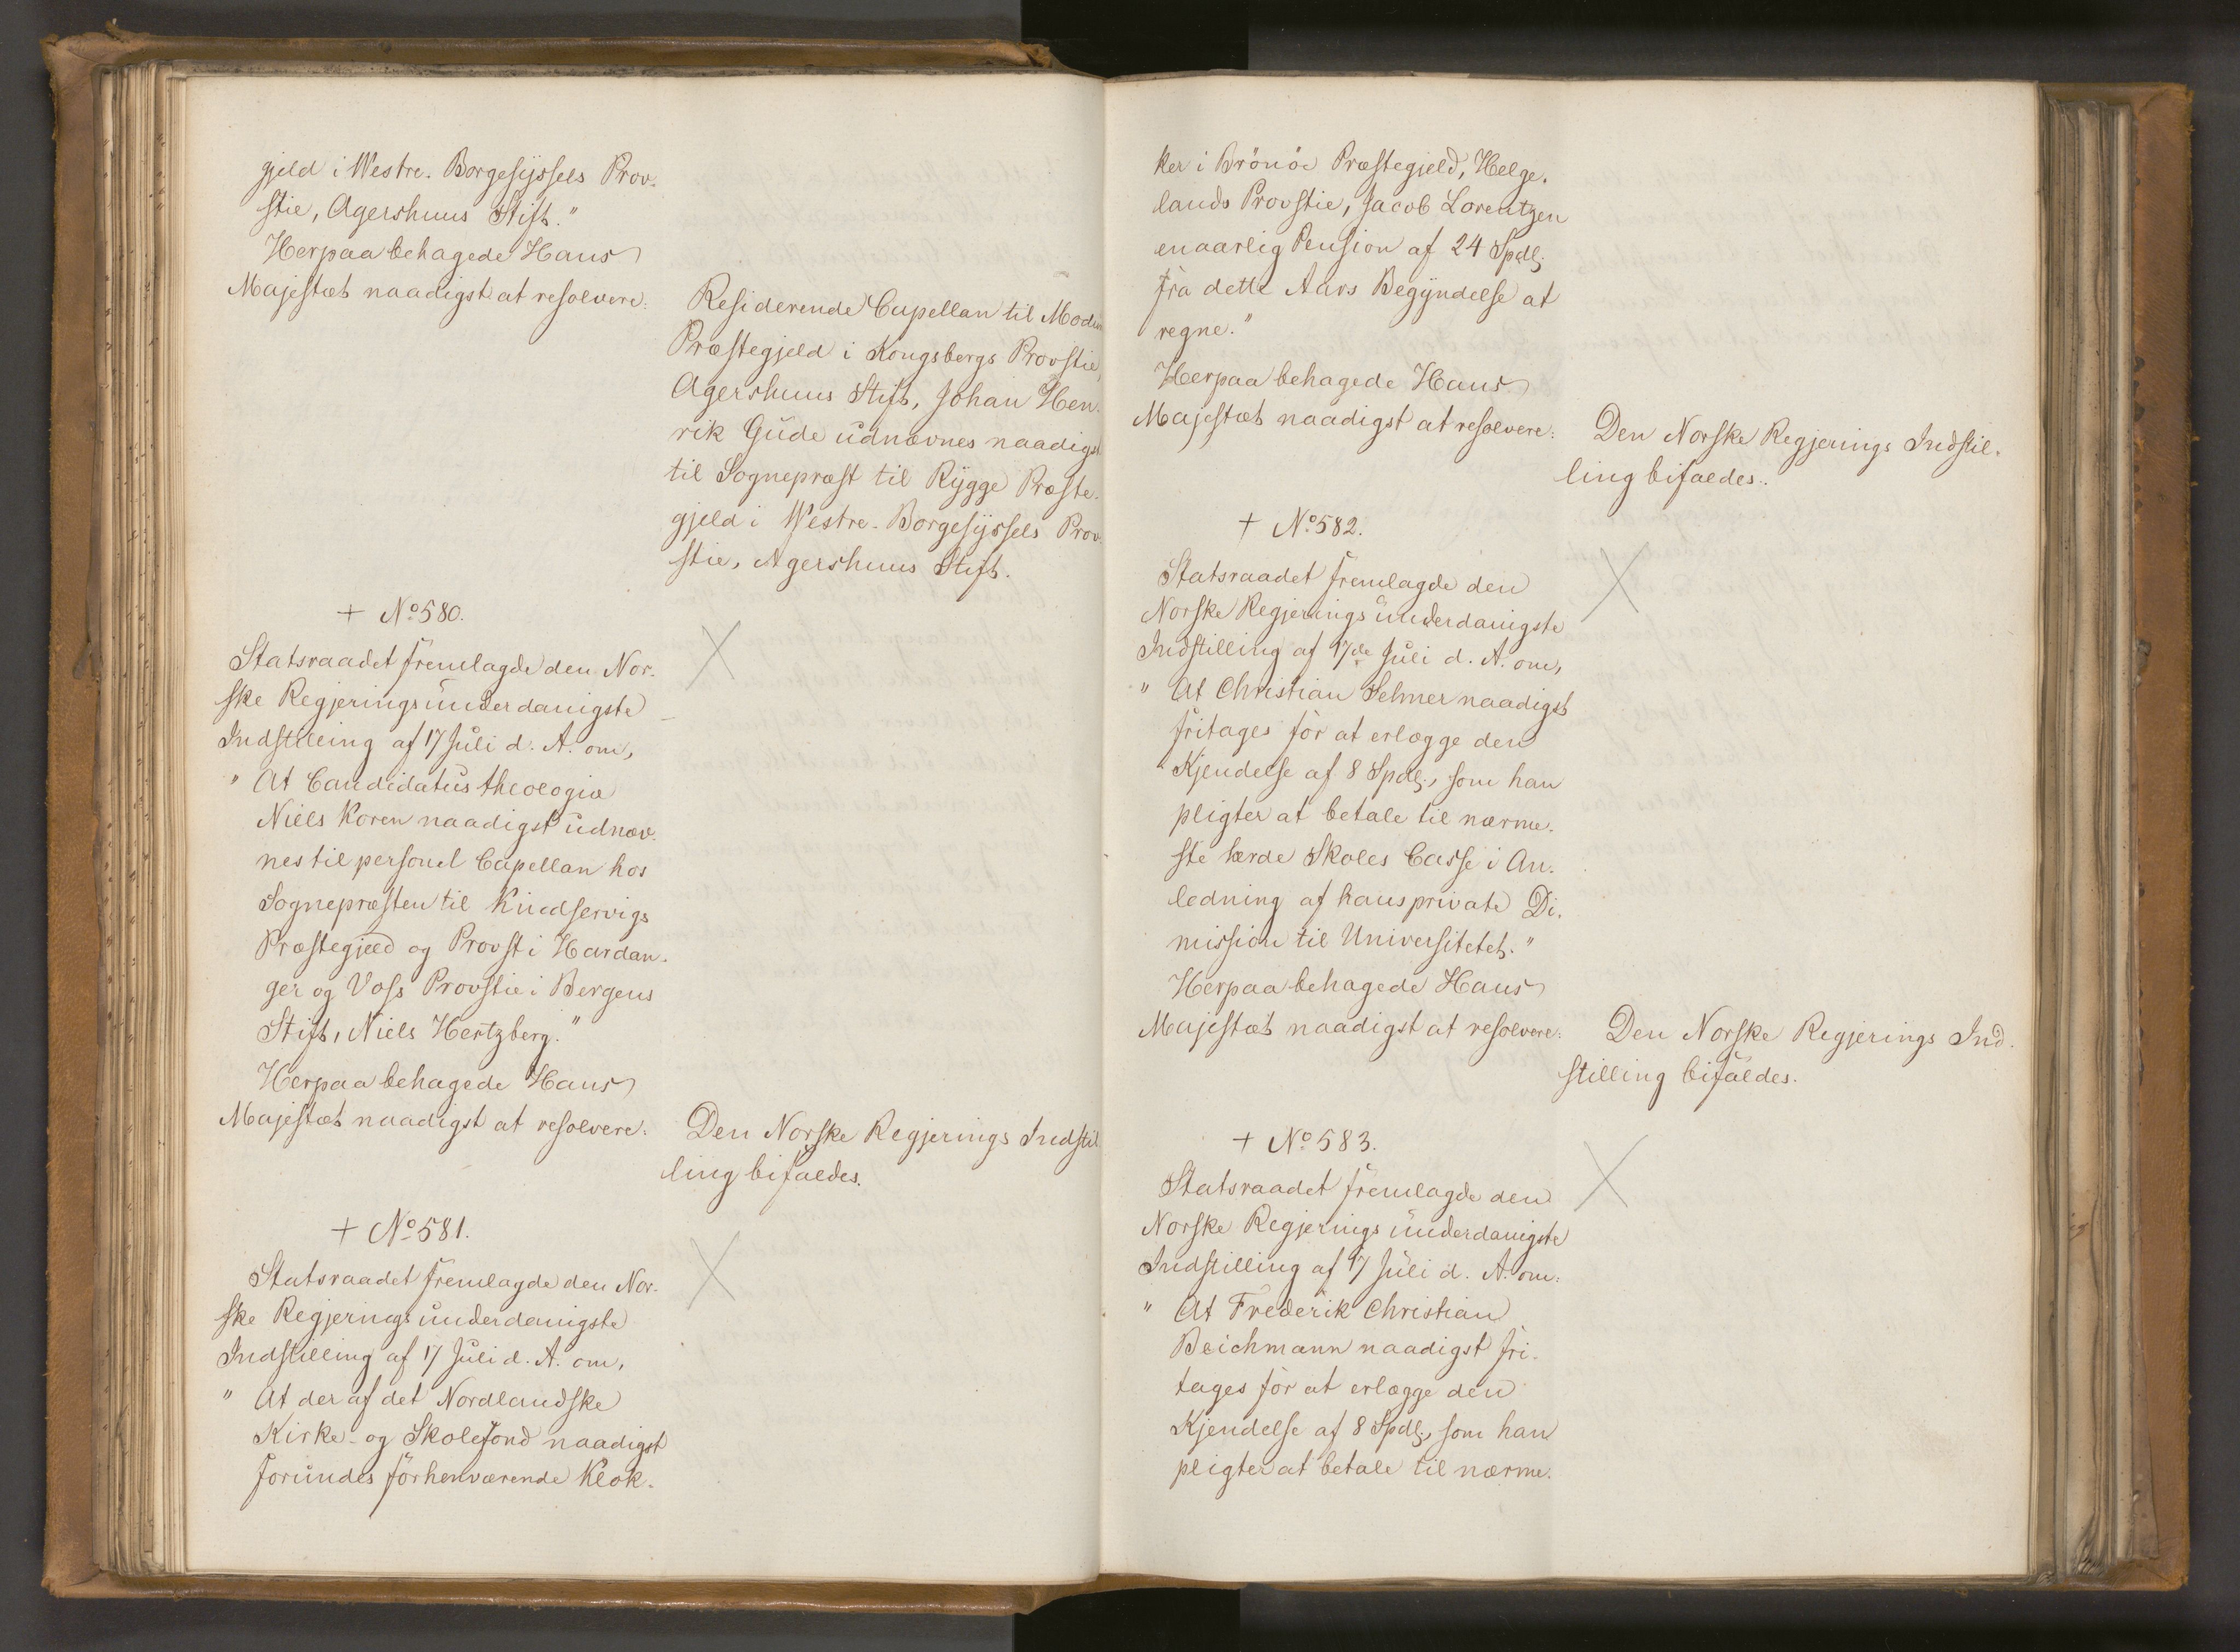 gjeld i Westre-Borgesyssels Prov-
stie, Agershuus Stift."
Herpaa behagede Hans
Majestæt naadigst at resolvere:
Residerende Capellan til Modum
Præstegjeld i Kongsbergs Provstie,
Agershuus Stift, Johan Hen-
rik Gude udnævnes naadigst
til Sognepræst til Rygge Præste-
gjeld i Westre-Borgesyssels Prov-
stie, Agershuus Stift.
+ No 580.
Statsraadet fremlagde den Nor-
ske Regjerings underdanigste
Indstilling af 17 Juli d. A. om,
" At Candidatus theologiæ
Niels Koren naadigst udnæv-
nes til personel Capellan hos
Sognepræsten til Kindservigs
Præstegjeld og Provst i Hardan-
ger og Voss Provstie i Bergens
Stift, Niels Hertzberg."
Herpaa behagede Hans
Majestæt naadigst at resolvere:
Den Norske Regjerings Indstil
ling bifaldes.
+ No 581.
Statsraadet fremlagde den Nor-
ske Regjerings underdanigste
Indstilling af 17 Juli d. A. om,
" At der af det Nordlandske
Kirke- og Skolefond naadigst
forundes forhenværende Klok-
ker i Brönöe Præstegjeld, Helge-
lands Provstie, Jacob Lorentzen
en aarlig Pension af 24 Spdlr.
fra dette Aars Begyndelse at
regne."
Herpaa behagede Hans
Majestæt naadigst at resolvere:
Den Norske Regjerings Indstil-
ling bifaldes.
+ No 582.
Statsraadet fremlagde den
Norske Regjerings underdanigste
Indstilling af 17de Juli d. A. om,
" At Christian Selmer naadigst
fritages for at erlægge den
Kjendelse af 8 Spdlr., som han
pligter at betale til nærme-
ste lærde Skoles Casse i An-
ledning af hans private Di-
mission til Universitetet."
Herpaa behagede Hans
Majestæt naadigst at resolvere:
Den Norske Regjerings Ind-
stilling bifaldes.
+ No 583.
Statsraadet fremlagde den
Norske Regjerings underdanigste
Indstilling af 17 Juli d. A. om:
" At Frederik Christian
Beichmann naadigst fri-
tages for at erlægge den
Kjendelse af 8 Spdlr., som han
pligter at betale til nærme-